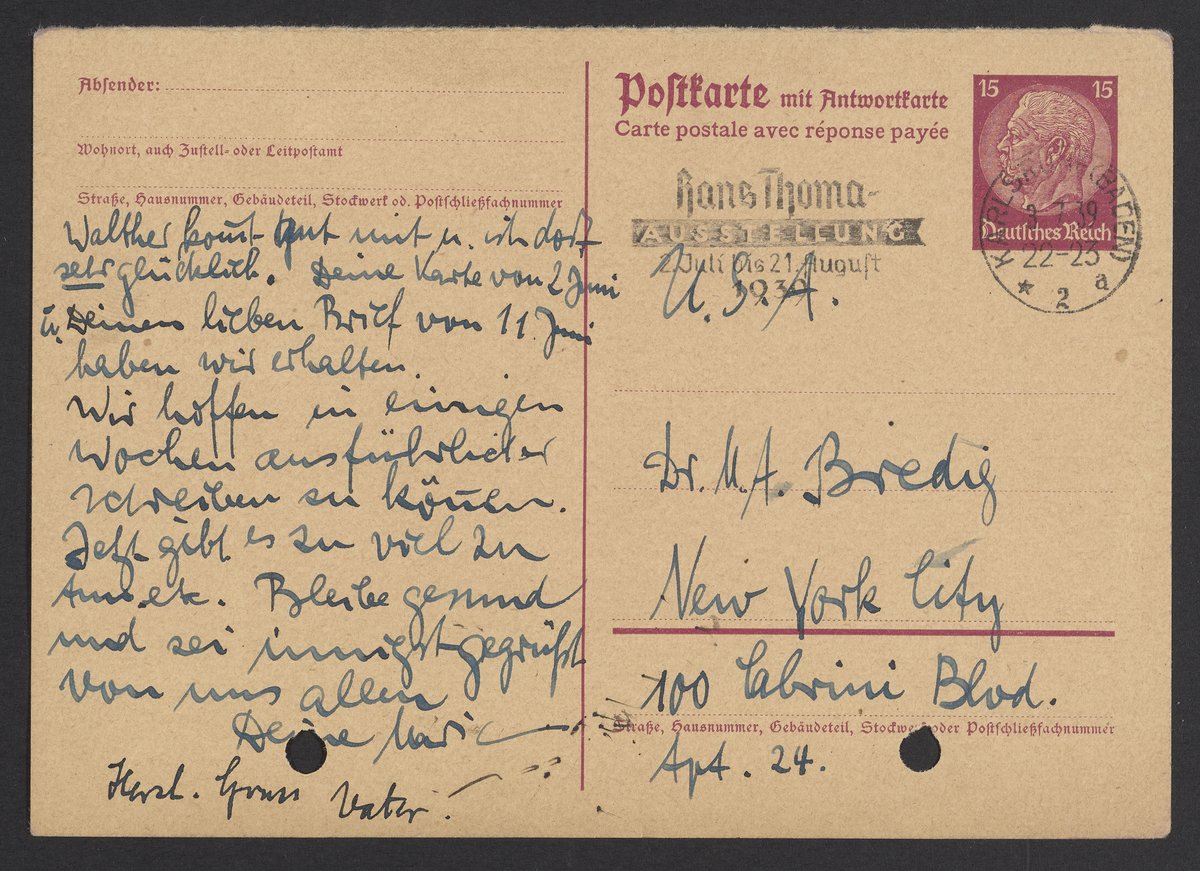 Absender:
Wohnort, auch Zustell- oder Leitpostamt
Straße, Hausnummer, Gebäudeteil, Stockwerk od. Postschließfachnummer
Walther kommt gut mit u. ist dort
sehr glücklich. Deine Karte von 2 Juni
u. Deinen lieben Brief von 11 Juni
haben wir erhalten.
Wir hoffen in einigen
Wochen ausführlicher
schreiben zu können.
Jetzt gibt es zu viel zu
etc. Bleibe gesund
und sei innigst gegrüßt
von uns allen
Deine
Herzl. Gruss Vater.
Postkarte mit Antwortkarte
Carte postale avec réponse payée
15 15
Deutsches Reich
Hans Thoma-
AUSSTELLUNG
2. Juli bis 21. August
1939
KARLSRUHE (BADEN)
7.39
22-23
* 2 a
U.S.A.
Dr. M. A. Bredig
New York City
100 Cabrini Blvd.
Straße, Hausnummer, Gebäudeteil, Stockwerk oder Postschließfachnummer
Apt. 24.